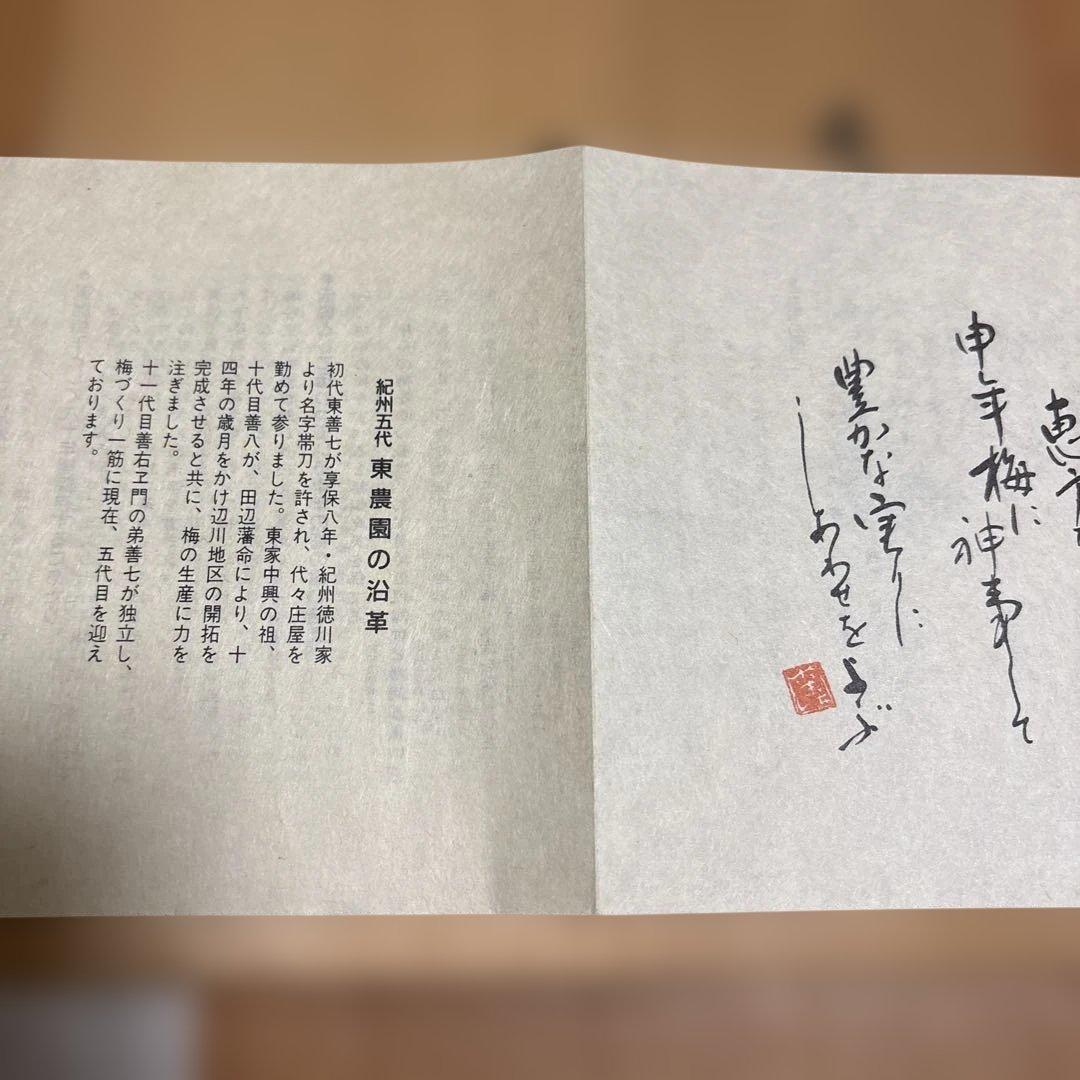 申年梅に神
豊かな実りに
しあわせをよぶ
紀州五代 東農園の沿革
初代東善七が享保八年・紀州徳川家
より名字帯刀を許され、代々庄屋を
勤めて参りました。東家中興の祖、
十代目善八が、田辺藩命により、十
四年の歳月をかけ辺川地区の開拓を
完成させると共に、梅の生産に力を
注ぎました。
十一代目善右ヱ門の弟善七が独立し、
梅づくり一筋に現在、五代目を迎え
ております。